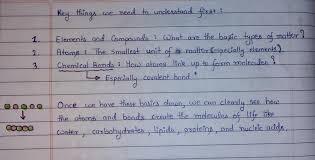 Key things we need to understand first :
1. Elements and Compounds : What are the basic types of matter?
2. Atoms : The smallest unit of matter (especially elements).
3. Chemical Bonds : How atoms link up to form molecules?
↳ Especially covalent bond.
Once we have these basics down, we can clearly see how
the atoms and bonds create the molecules of life like
water, carbohydrates, lipids, proteins, and nucleic acids.